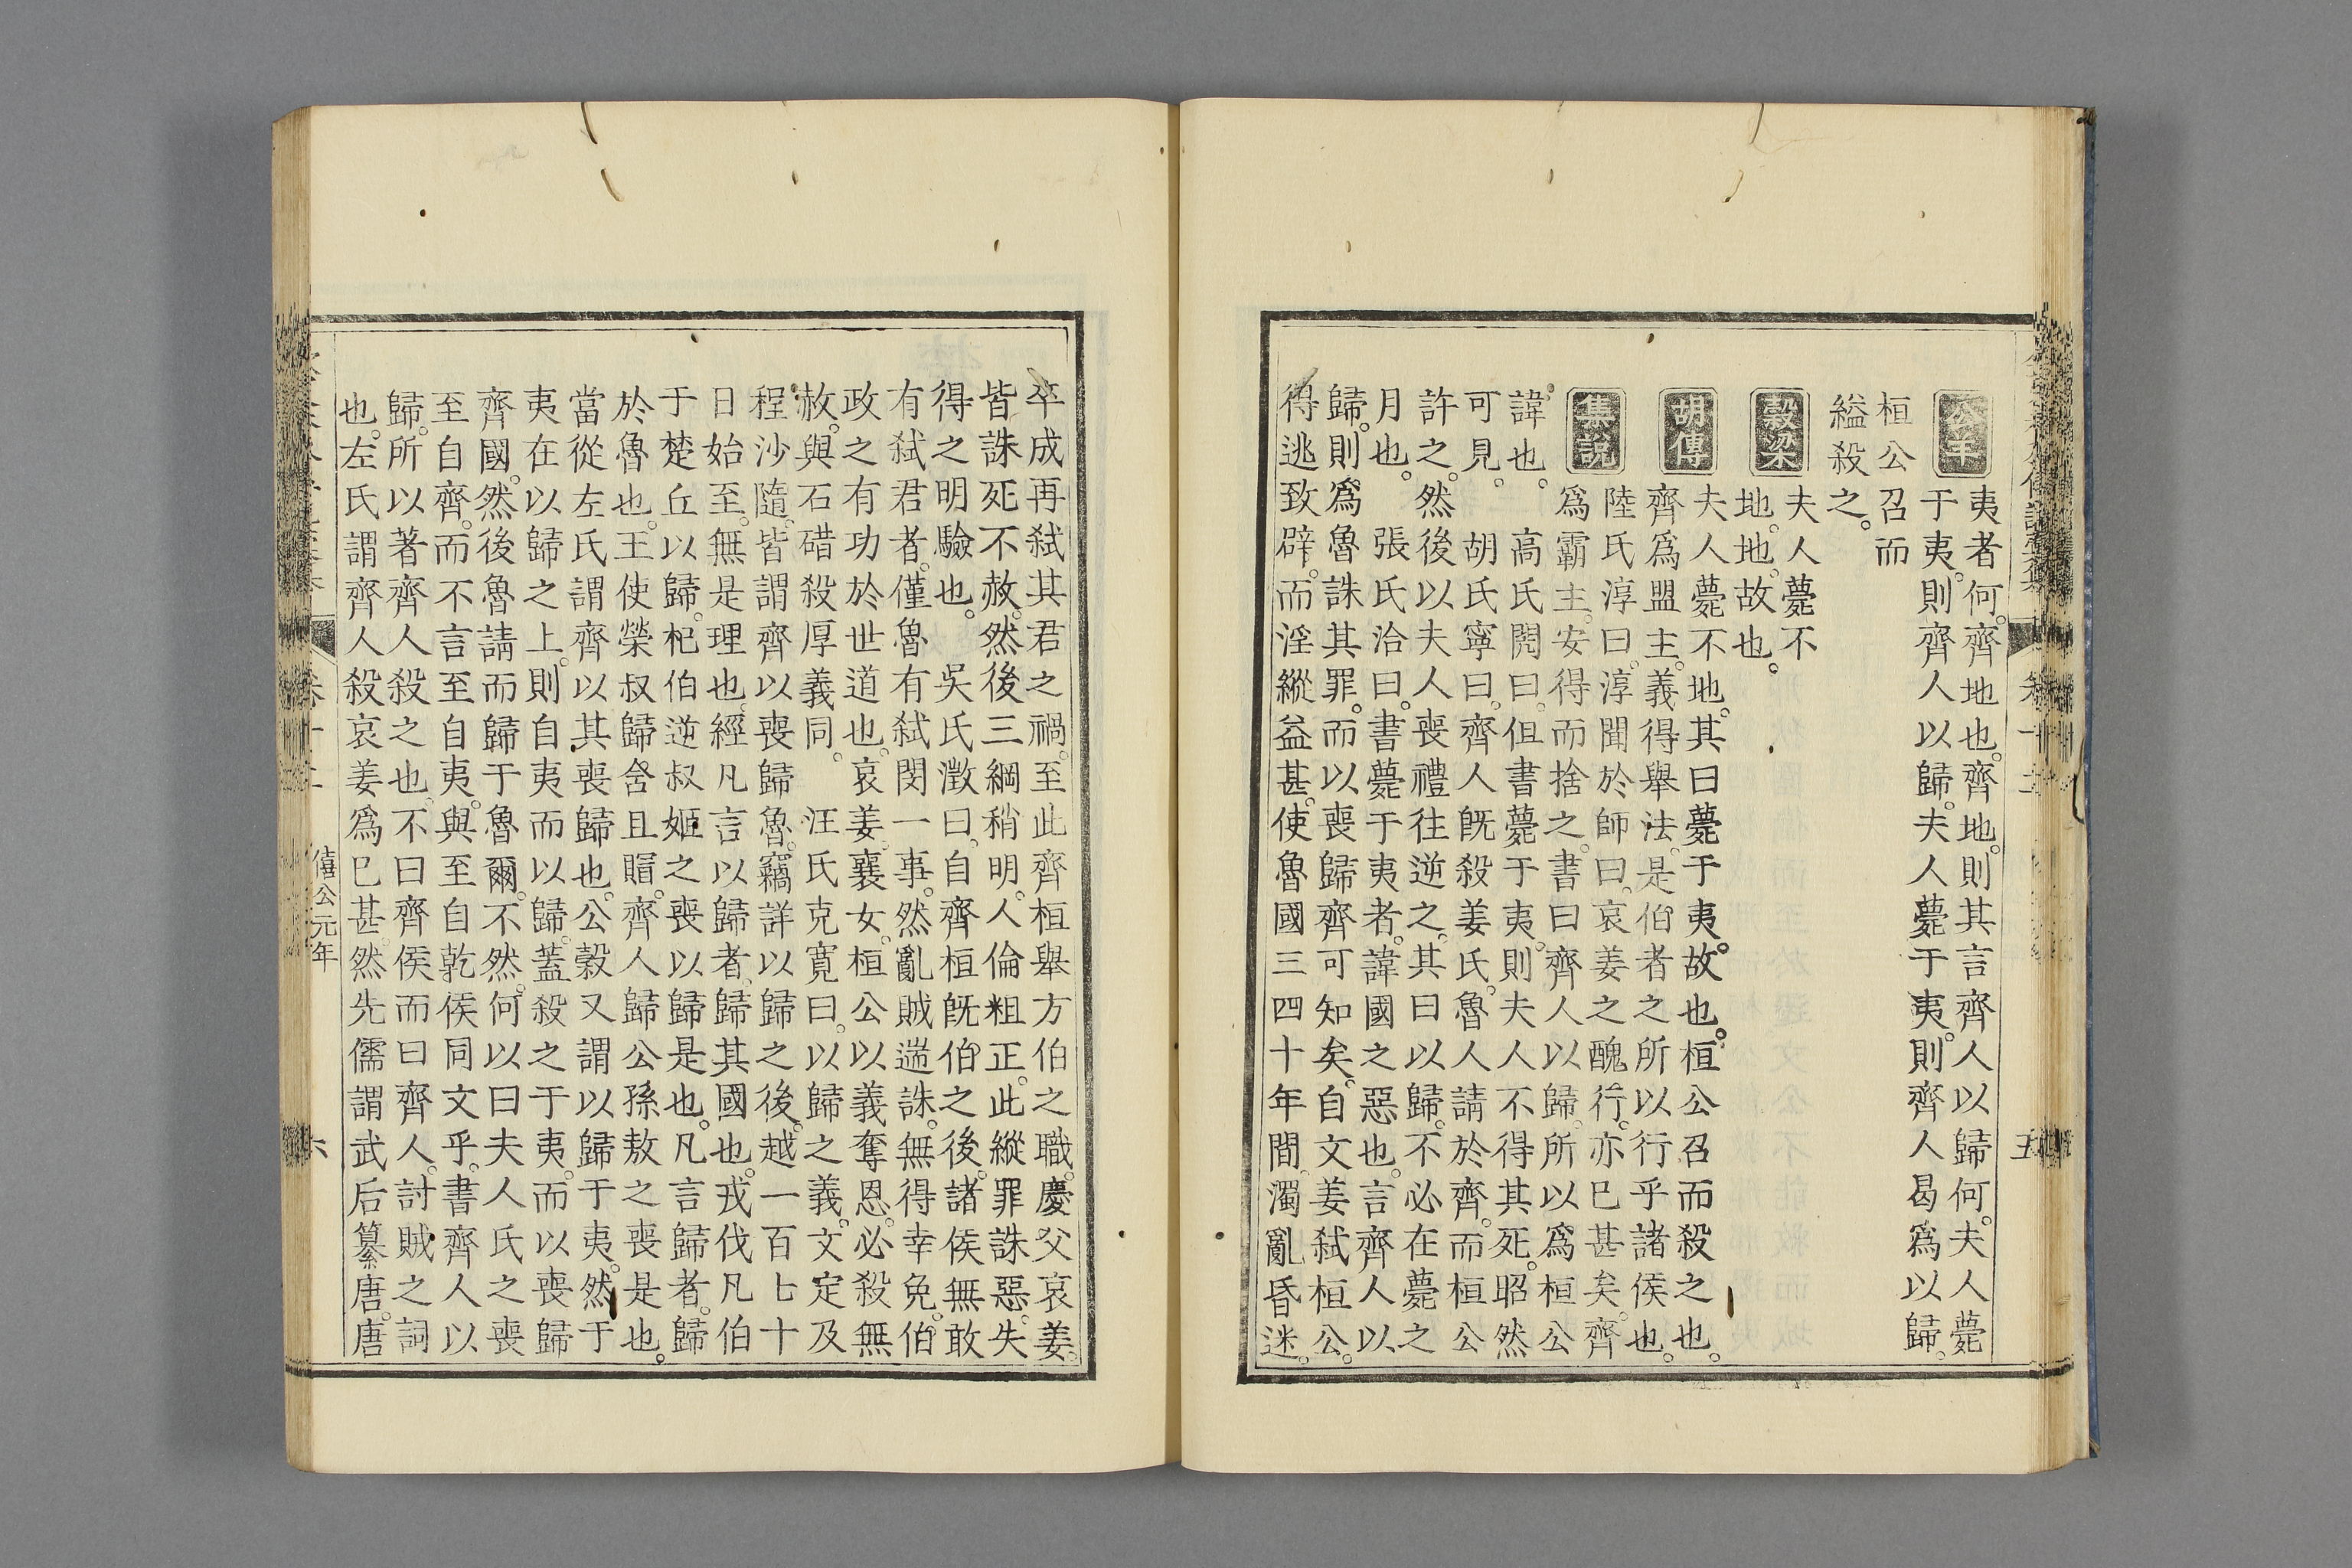 公羊
夷者何。齊地也。齊地。則其言齊人以歸何。夫人薨
于夷。則齊人以歸。夫人薨于夷。則齊人曷爲以歸。
桓公召而
縊殺之。
穀梁
夫人薨不
地。地。故也。
胡傳
夫人薨不地。其曰薨于夷。故也。桓公召而殺之也。
齊爲盟主。義得舉法。是伯者之所以行乎諸侯也。
集說
陸氏淳曰。淳聞於師曰。哀姜之醜行。亦已甚矣。齊
爲霸主。安得而捨之。書曰齊人以歸。所以爲桓公
諱也。 高氏閌曰。但書薨于夷。則夫人不得其死。昭然
可見。 胡氏寧曰。齊人旣殺姜氏。魯人請於齊。而桓公
許之。然後以夫人喪禮往逆之。其曰以歸。不必在薨之
月也。 張氏洽曰。書薨于夷者。諱國之惡也。言齊人以
歸。則爲魯誅其罪。而以喪歸齊可知矣。自文姜弑桓公。
得逃致辟。而淫縱益甚。使魯國三四十年間。濁亂昏迷。
五
卒成再弑其君之禍。至此齊桓舉方伯之職。慶父哀姜。
皆誅死不赦。然後三綱稍明。人倫粗正。此縱罪誅惡。失
得之明驗也。 吳氏澂曰。自齊桓旣伯之後。諸侯無敢
有弑君者。僅魯有弑閔一事。然亂賊遄誅。無得幸免。伯
政之有功於世道也。哀姜。襄女。桓公以義奪恩。必殺無
赦。與石碏殺厚義同。 汪氏克寬曰。以歸之義。文定及
程沙隨。皆謂齊以喪歸魯。竊詳以歸之後。越一百七十
日始至。無是理也。經凡言以歸者。歸其國也。戎伐凡伯
于楚丘以歸。杞伯逆叔姬之喪以歸是也。凡言歸者。歸
於魯也。王使榮叔歸含且賵。齊人歸公孫敖之喪是也。
當從左氏謂齊以其喪歸也。公穀又謂以歸于夷。然于
夷在以歸之上。則自夷而以歸。蓋殺之于夷。而以喪歸
齊國。然後魯請而歸于魯爾。不然。何以曰夫人氏之喪
至自齊。而不言至自夷。與至自乾侯同文乎。書齊人以
歸。所以著齊人殺之也。不曰齊侯而曰齊人。討賊之詞
也。左氏謂齊人殺哀姜爲已甚。然先儒謂武后纂唐。唐
僖公元年
六